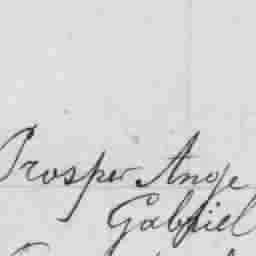 Prosper Ange
Gabriel